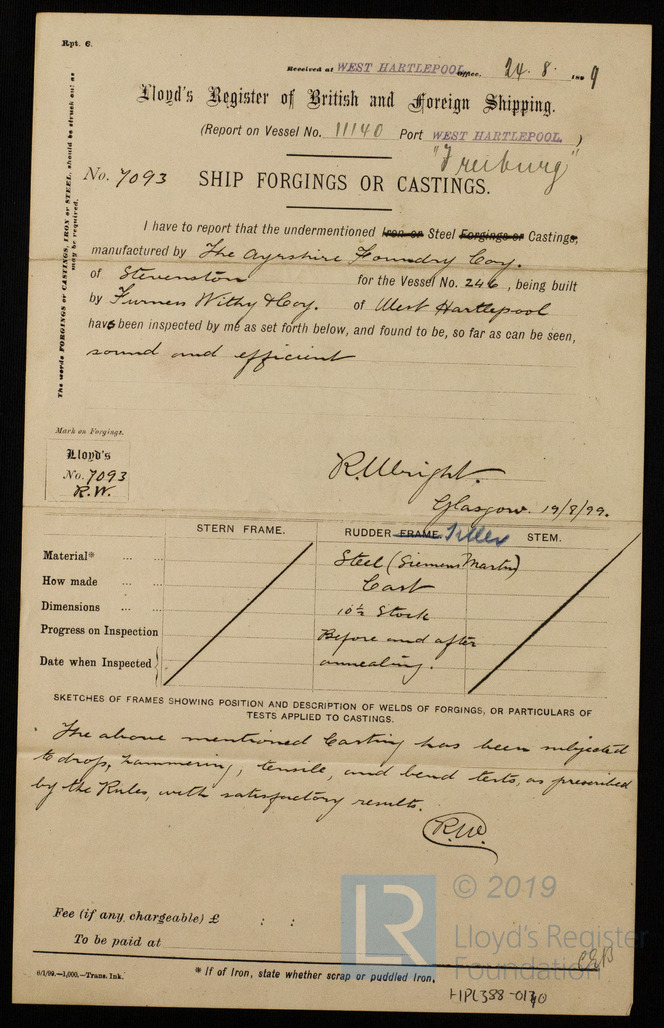 Rpt. 6.
Received at WEST HARTLEPOOL Office. 24. 8. 1899
Lloyd's Register of British and Foreign Shipping.
(Report on Vessel No. 11140 Port WEST HARTLEPOOL. )
"Freiburg"
No. 7093 SHIP FORGINGS OR CASTINGS.
The words FORGINGS or CASTINGS, IRON or STEEL, should be struck out as
may be required.
I have to report that the undermentioned Iron or Steel Forgings or Castings,
manufactured by The Ayrshire Foundry Coy.
of Stevenston for the Vessel No. 246, being built
by Furness Withy & Coy. of West Hartlepool
has been inspected by me as set forth below, and found to be, so far as can be seen,
sound and efficient
Mark on Forgings.
Lloyd's
No. 7093
R.W.
R. Wright.
Glasgow. 19/8/99.
STERN FRAME. RUDDER FRAME. Tiller STEM.
Material* ... ... Steel (Siemens Martin)
How made ... Cast
Dimensions ... ... 10½ Stock
Progress on Inspection Before and after
Date when Inspected annealing.
SKETCHES OF FRAMES SHOWING POSITION AND DESCRIPTION OF WELDS OF FORGINGS, OR PARTICULARS OF
TESTS APPLIED TO CASTINGS.
The above mentioned Casting has been subjected
to drop, hammering, tensile, and bend tests, as prescribed
by the Rules, with satisfactory results.
R.W.
Fee (if any chargeable) £ : :
To be paid at
6/1/99.—1,000.—Trans. Ink.
* If of Iron, state whether scrap or puddled Iron.
LR
© 2019
Lloyd's Register
Foundation
HPL388-0130